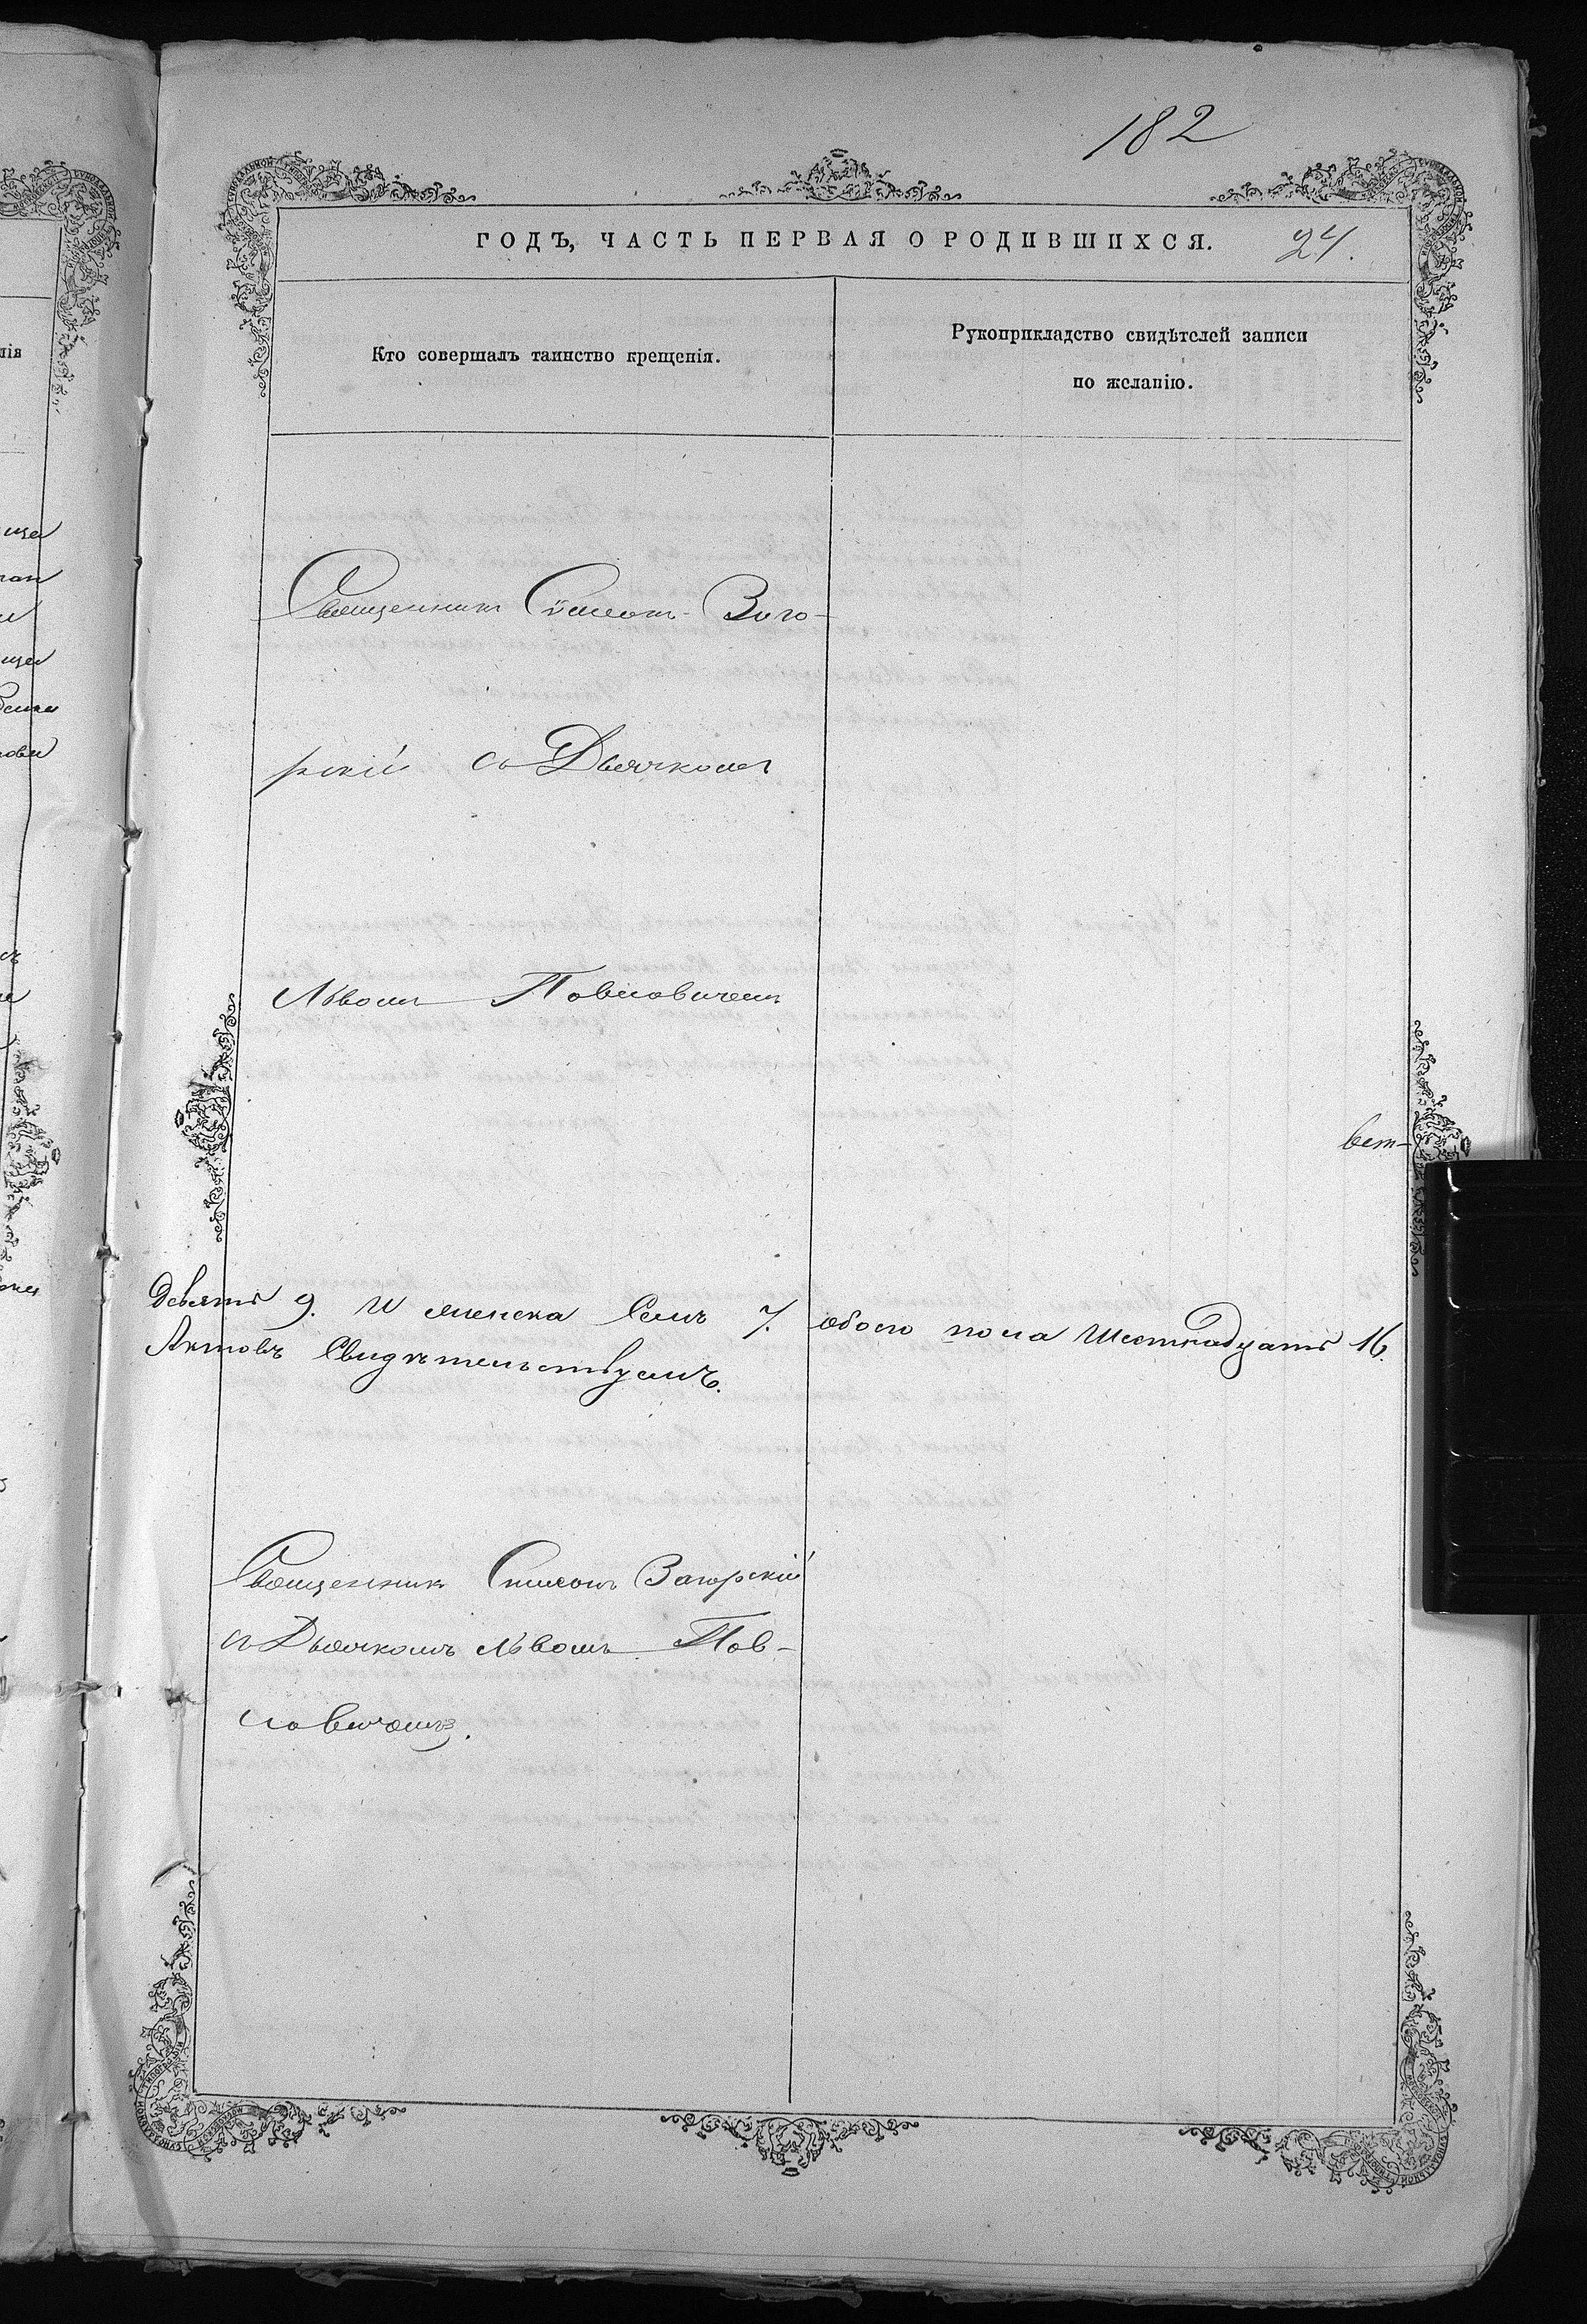 182
ГОДЪ, ЧАСТЬ ПЕРВАЯ О РОДИВШИХСЯ. 24.
Кто совершалъ таинство крещенія.
Рукоприкладство свидѣтелей записи
по желанію.
Священникъ Симеонъ Заго-
рскій съ Дьячкомъ
Львомъ Повсловичемъ
Девять 9. И женска Семъ 7. обоего пола Шестнадцать 16.
Актовъ Свидѣтельствуемъ.
Священникъ Симеонъ Загорскій
съ Дьячкомъ Львомъ Пов-
словичемъ.